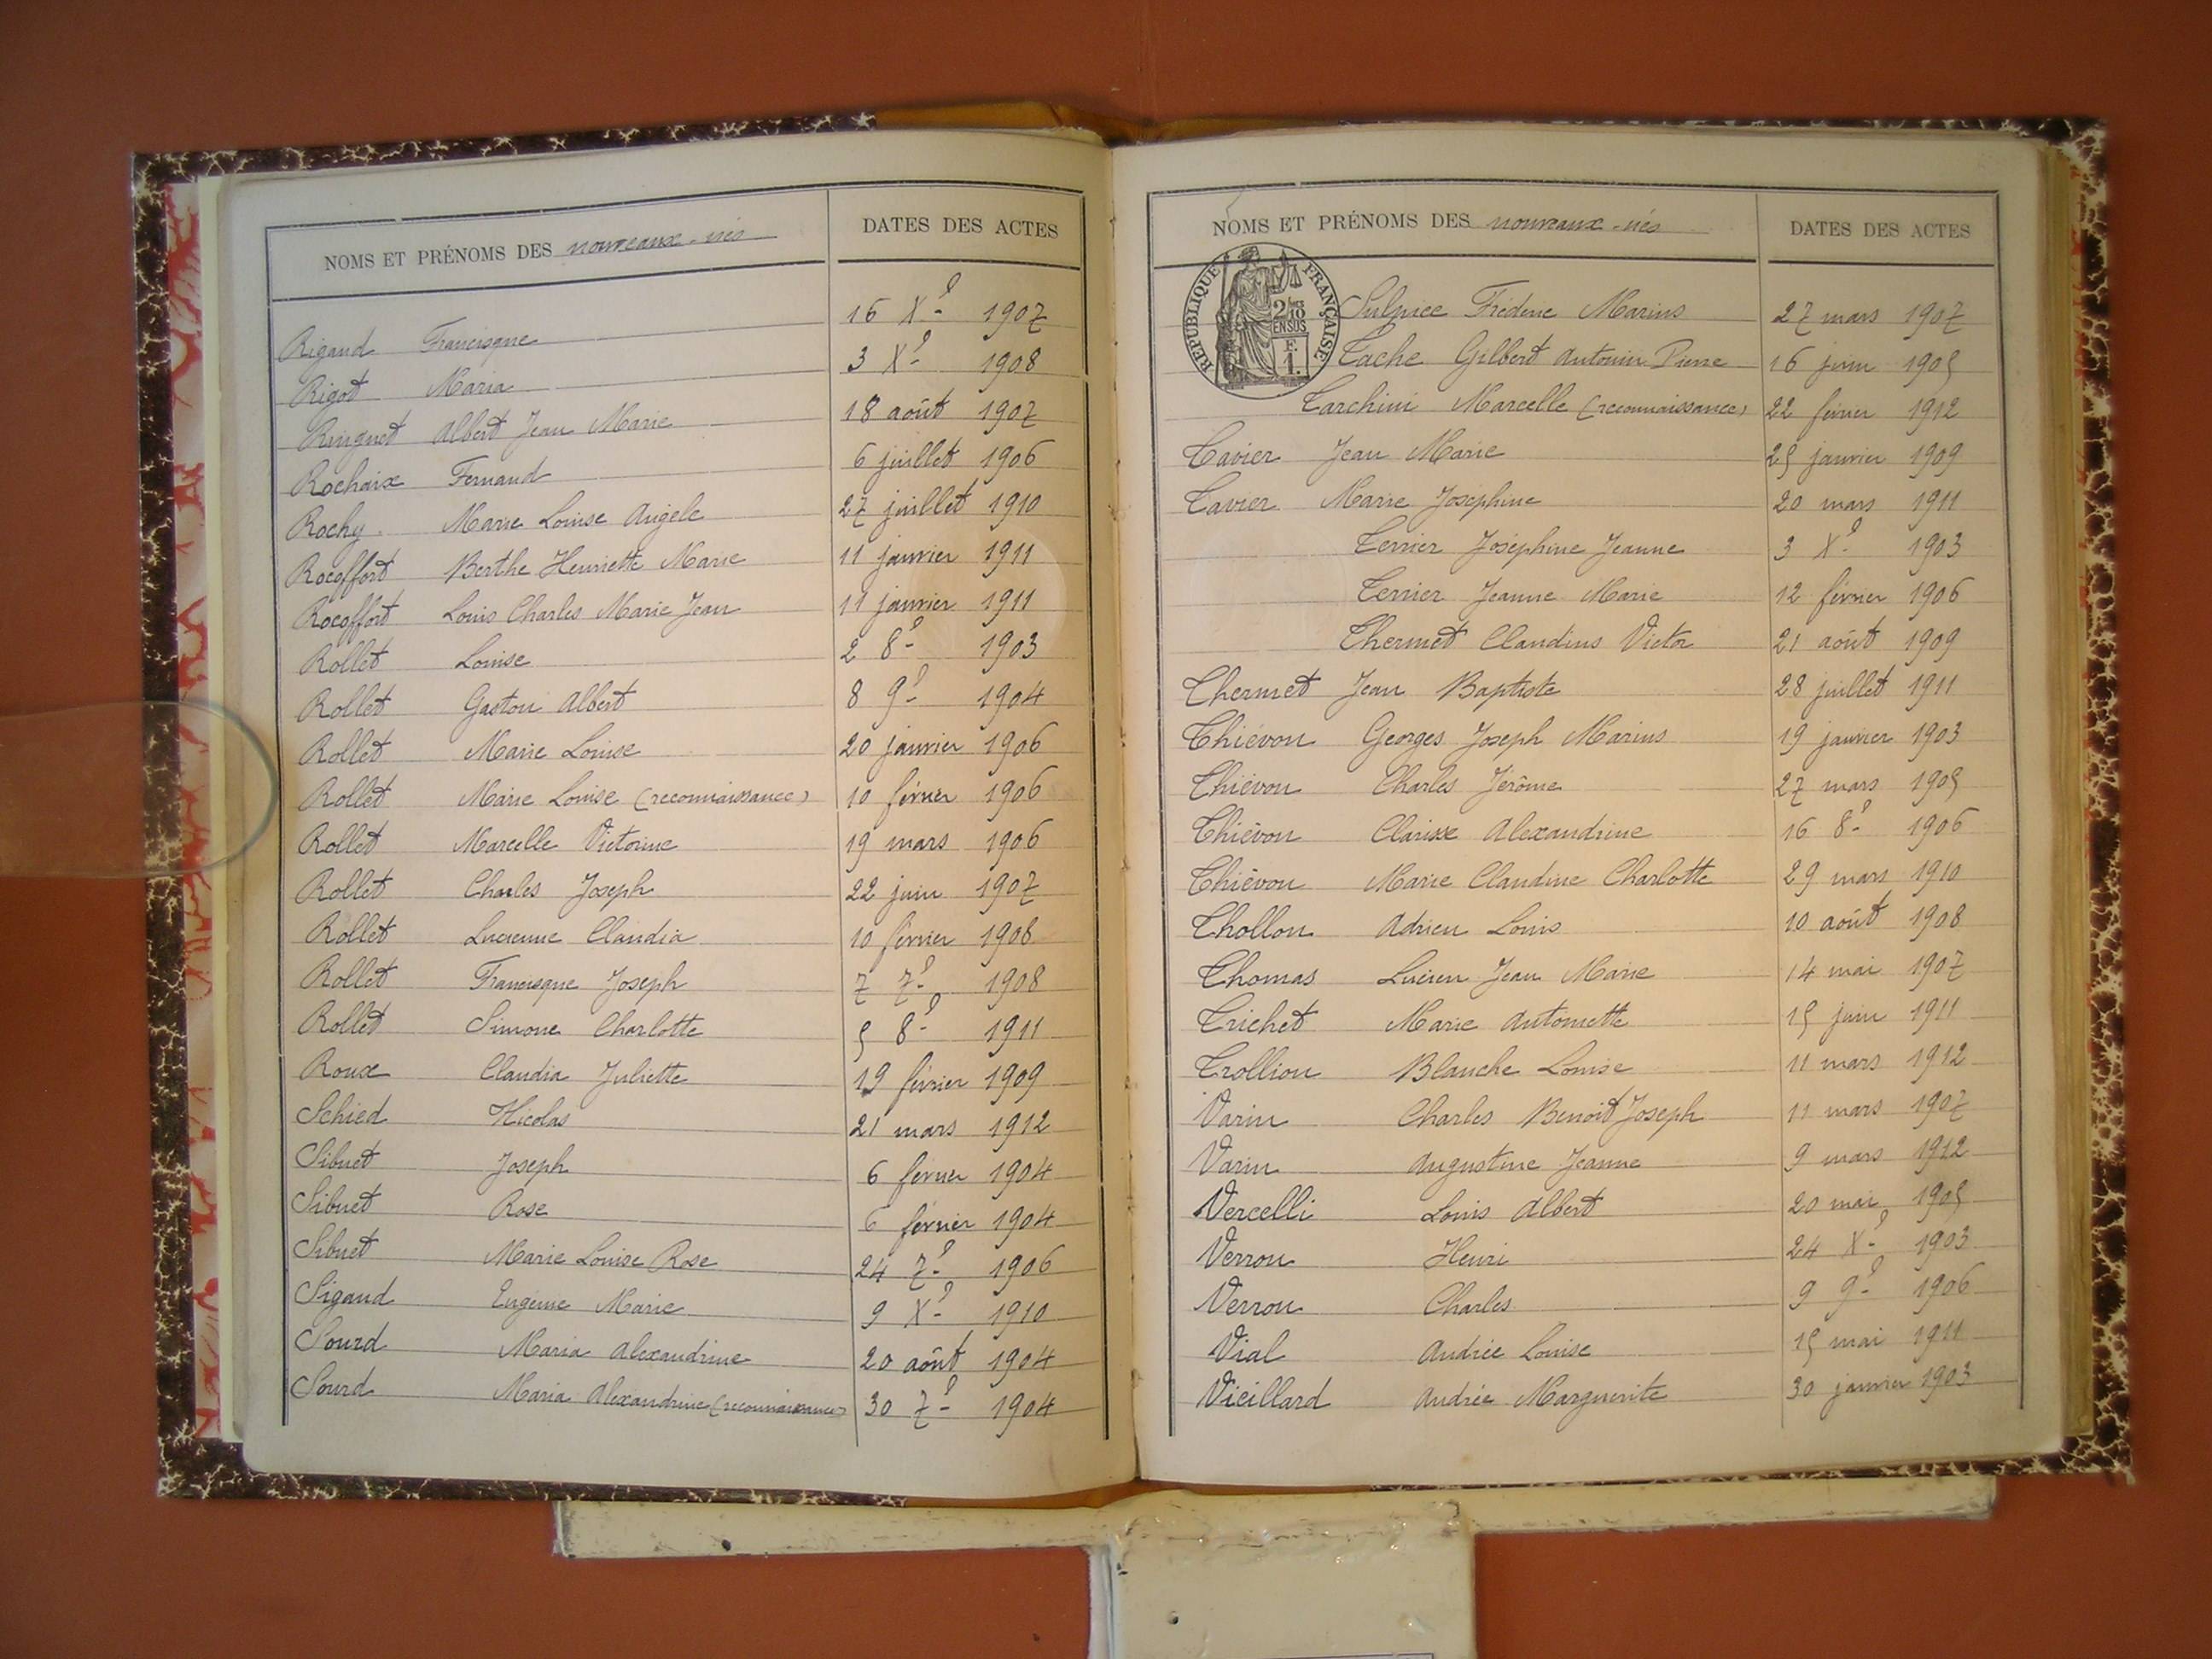 NOMS ET PRÉNOMS DES nouveaux-nés DATES DES ACTES
Rigaud Francisque 16 Xe 1907
Rigot Maria 3 Xe 1908
Ringuet Albert Jean Marie 18 août 1907
Rochaix Fernand 6 juillet 1906
Rochy Marie Louise Angèle 27 juillet 1910
Rocoffort Berthe Henriette Marie 11 janvier 1911
Rocoffort Louis Charles Marie Jean 11 janvier 1911
Rollet Louise 2 8e 1903
Rollet Gaston Albert 8 9e 1904
Rollet Marie Louise 20 janvier 1906
Rollet Marie Louise (reconnaissance) 10 février 1906
Rollet Marcelle Victorine 19 mars 1906
Rollet Charles Joseph 22 juin 1907
Rollet Lucienne Claudia 10 février 1908
Rollet Francisque Joseph 7 7e 1908
Rollet Simone Charlotte 5 8e 1911
Roux Claudia Juliette 19 février 1909
Schied Nicolas 21 mars 1912
Sibuet Joseph 6 février 1904
Sibuet Rose 6 février 1904
Sibuet Marie Louise Rose 24 7e 1906
Sigaud Eugénie Marie 9 Xe 1910
Sourd Maria Alexandrine 20 août 1904
Sourd Maria Alexandrine (reconnaissance) 30 7e 1904
NOMS ET PRÉNOMS DES nouveaux-nés DATES DES ACTES
RÉPUBLIQUE FRANÇAISE
2/10
EN SUS
F.
1.
Sulpice Frédéric Marius 27 mars 1907
Tache Gilbert Antonin Pierre 16 juin 1905
Tarchini Marcelle (reconnaissance) 22 février 1912
Tavier Jean Marie 25 janvier 1909
Tavier Marie Joséphine 20 mars 1911
Terrier Joséphine Jeanne 3 Xe 1903
Terrier Jeanne Marie 12 février 1906
Thermet Claudius Victor 21 août 1909
Thermet Jean Baptiste 28 juillet 1911
Thiévon Georges Joseph Marius 19 janvier 1903
Thiévon Charles Jérôme 27 mars 1905
Thiévon Clarisse Alexandrine 16 8e 1906
Thiévon Marie Claudine Charlotte 29 mars 1910
Thollon Adrien Louis 10 août 1908
Thomas Lucien Jean Marie 14 mai 1907
Trichet Marie Antoinette 15 juin 1911
Trollion Blanche Louise 11 mars 1912
Varin Charles Benoit Joseph 11 mars 1907
Varin Augustine Jeanne 9 mars 1912
Vercelli Louis Albert 20 mai 1905
Verrou Henri 24 Xe 1903
Verrou Charles 9 9e 1906
Vial Andrée Louise 15 mai 1911
Vieillard Andrée Marguerite 30 janvier 1903